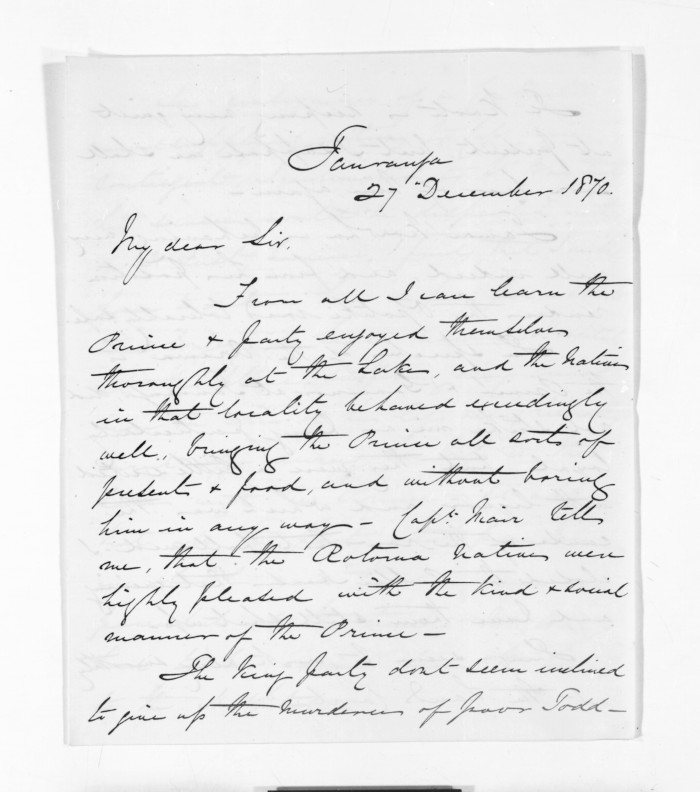 Tauranga
27 December 1870.
My dear Sir,
From all I can learn the
Prince & party enjoyed themselves
thoroughly at the Lakes, and the Natives
in that locality behaved exceedingly
well, bringing the Prince all sorts of
presents & food, and without boring
him in any way – Capt. Mair tells
me, that the Rotorua Natives were
highly pleased with the kind & social
manner of the Prince –
The King party dont seem inclined
to give up the murderers of poor Todd –